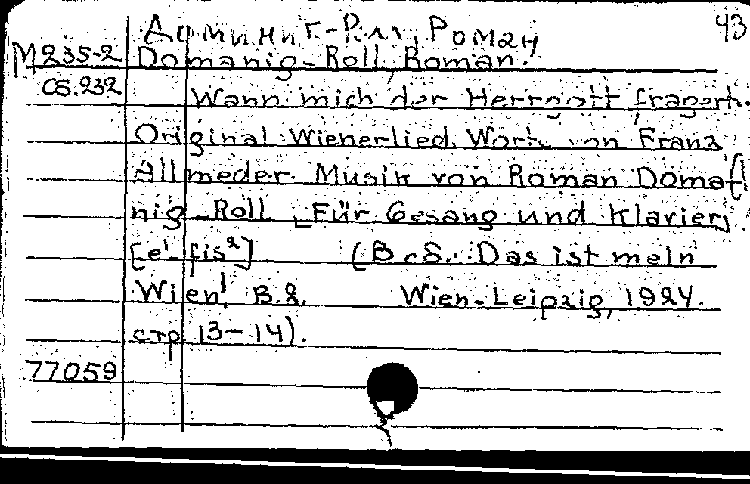 43
Роман
M235-2 Domanig-Roll, Roman.
сб.232 Wann mich der Herrgott fragert.
Original Wienerlied. Worte von Franz
Allmeder Musik von Roman Doma-
nig-Roll. Für Gesang und Klavier.
[e¹-fis²] (B сб.: Das ist mein
Wien! B.2. Wien-Leipzig, 1924.
стр 13-14).
77059